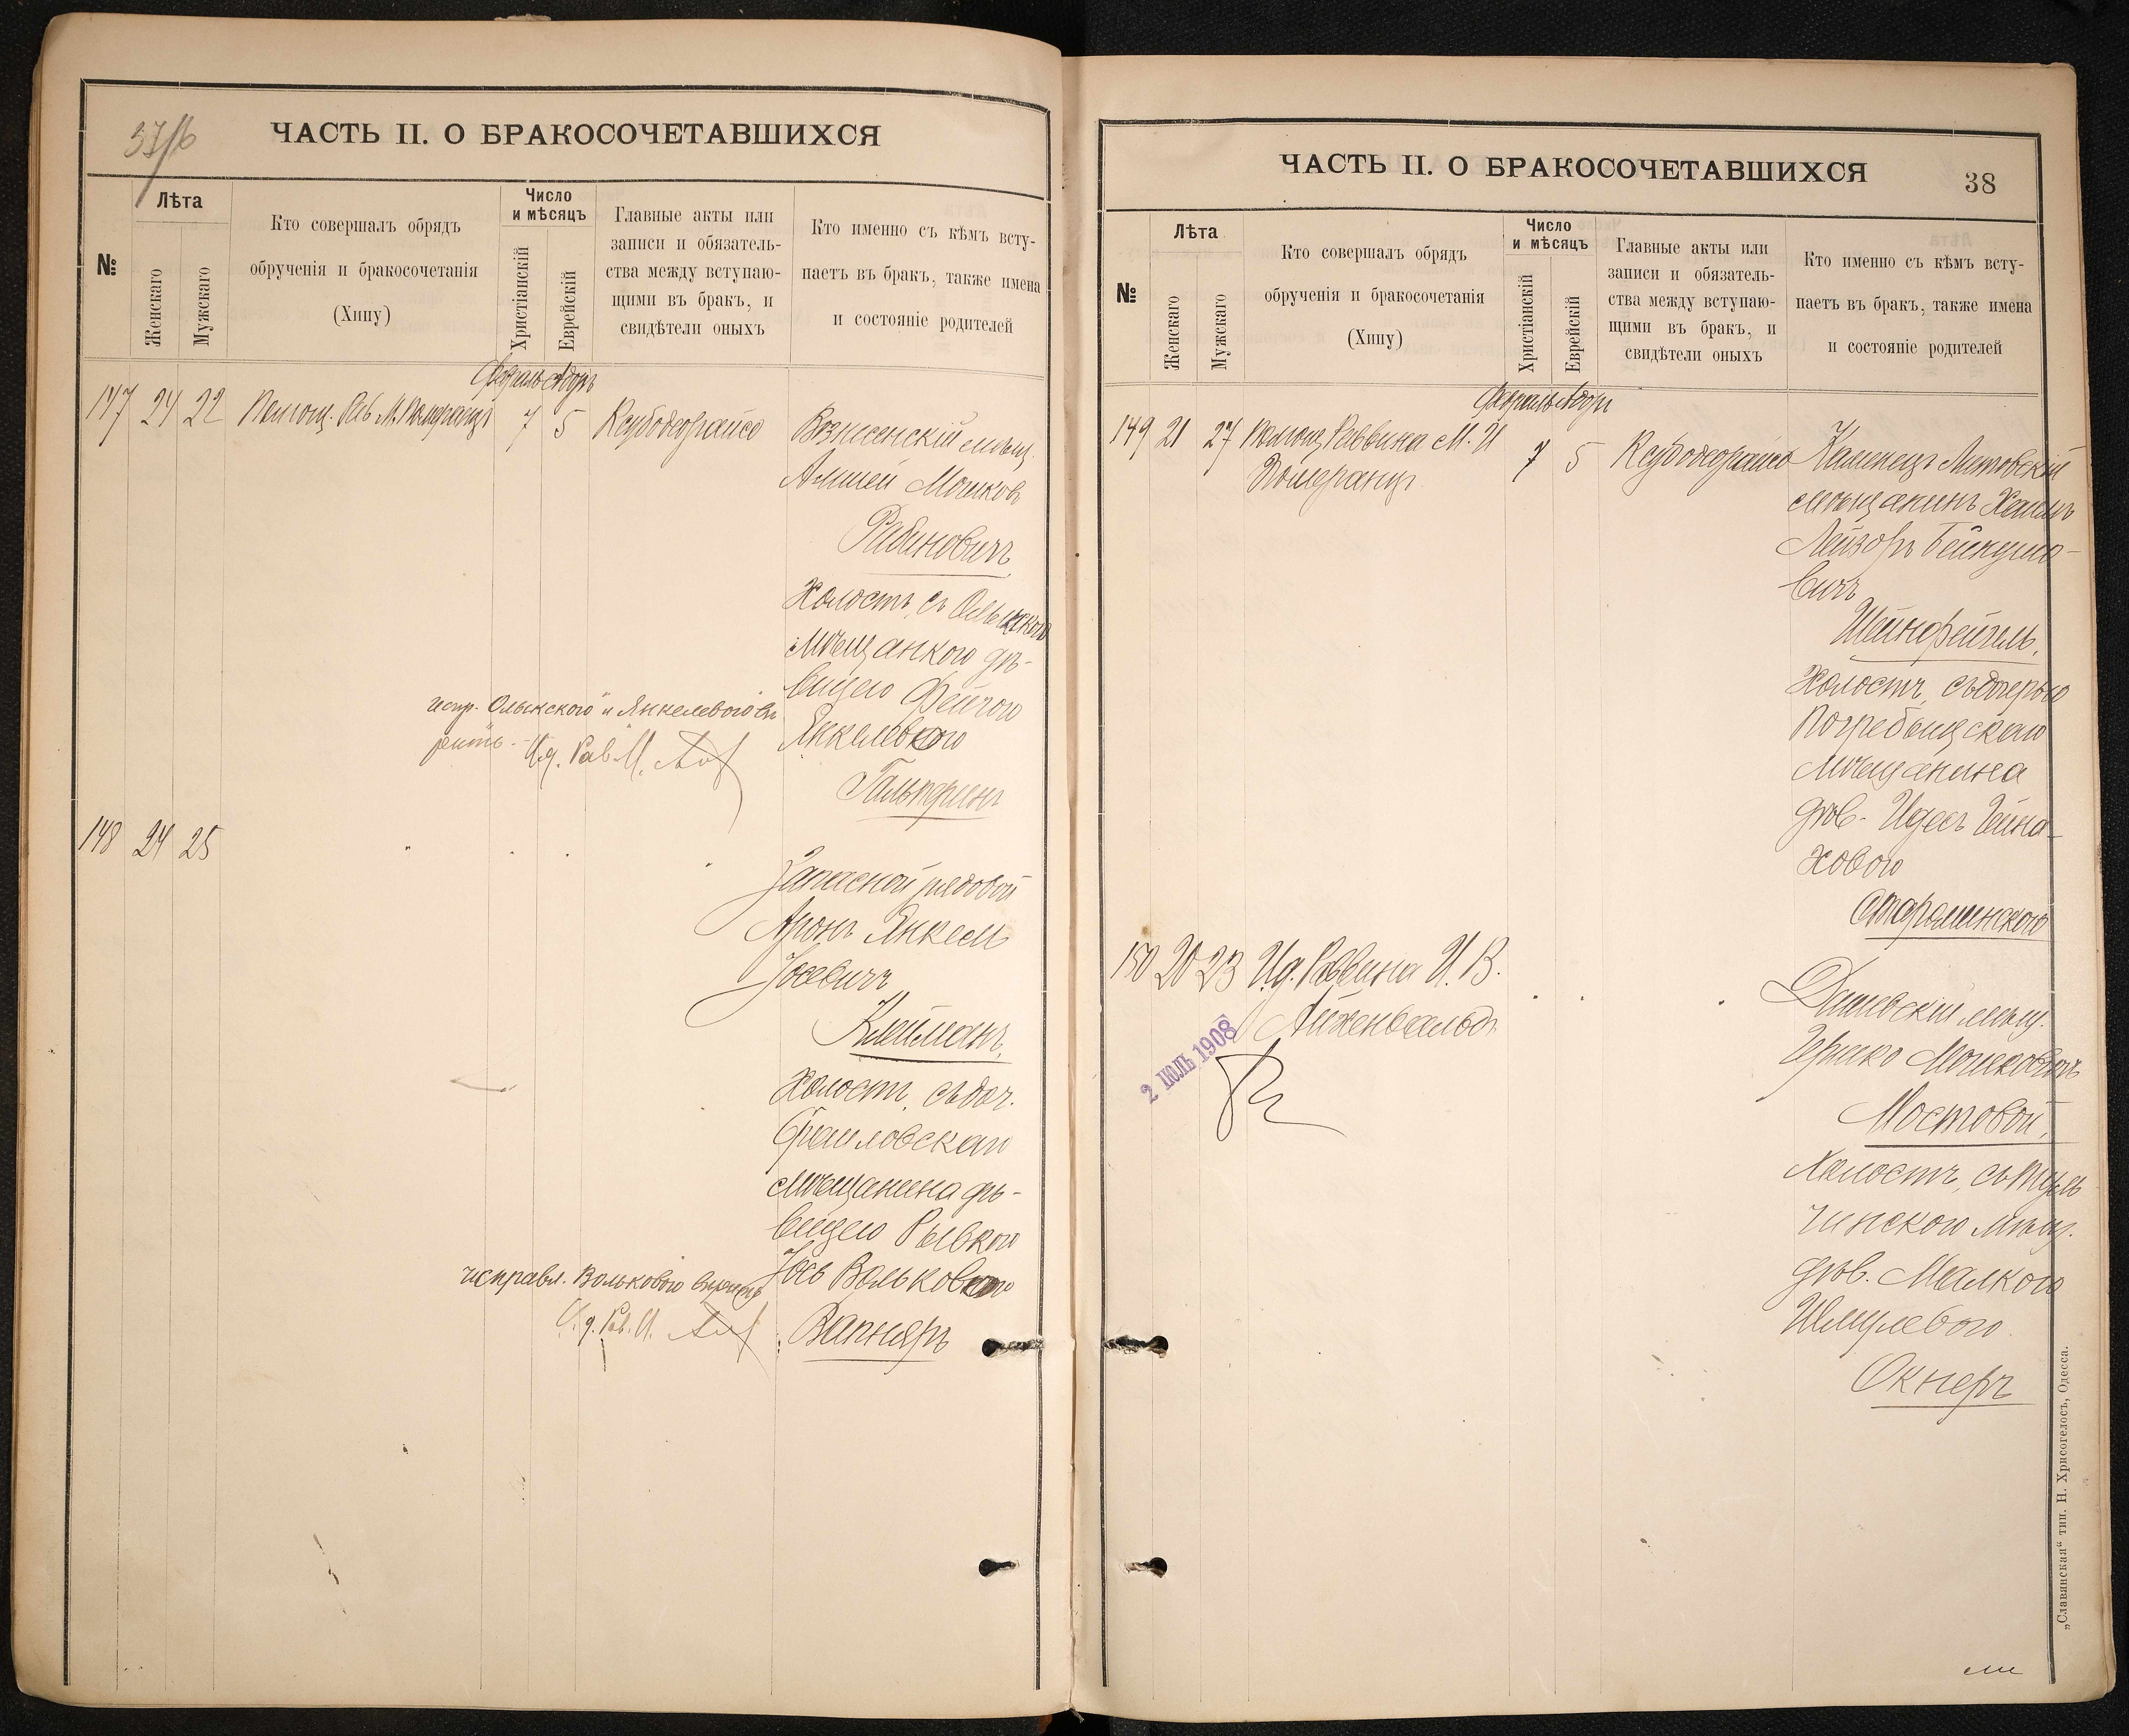 37/б
ЧАСТЬ II. О БРАКОСОЧЕТАВШИХСЯ
№
Лѣта
Женскаго
Мужскаго
Кто совершалъ обрядъ
обрученія и бракосочетанія
(Хипу)
Число
и мѣсяцъ
Христіанскій
Еврейскій
Главные акты или
записи и обязатель-
ства между вступаю-
щими въ бракъ, и
свидѣтели оныхъ
Кто именно съ кѣмъ всту-
паетъ въ бракъ, также имена
и состояніе родителей
Февраль Адоръ
147 24 22 Помощ. Рав. М. Померанцъ 7 5 Ксубодеорайсо
Вознесенскій мѣщ.
Мошков
Рабиновичъ
Холостъ, съ Олыкского
мѣщанкого дѣ-
вицею Фейгою
Янкелевого
Гальпринъ
испр. Олыкского и Янкелевого вѣ
рить - И.д. Рав. И.
148 24 25
Запасной рядовой
Аронъ Янкель
Іосевичъ
Клейманъ,
Холостъ, съ доч.
Браиловскаго
мѣщанина дѣ-
вицею Рывкою
Іось Вольковою
Вапняръ
исправл. Волькового вѣрить
И.д. Рав. И.
ЧАСТЬ II. О БРАКОСОЧЕТАВШИХСЯ
38
№
Лѣта
Женскаго
Мужскаго
Кто совершалъ обрядъ
обрученія и бракосочетанія
(Хипу)
Число
и мѣсяцъ
Христіанскій
Еврейскій
Главные акты или
записи и обязатель-
ства между вступаю-
щими въ бракъ, и
свидѣтели оныхъ
Кто именно съ кѣмъ всту-
паетъ въ бракъ, также имена
и состояніе родителей
Февраль Адоръ
149 21 27 Помощ. Раввина М. И
Померанцъ
7 5 Ксубодеорайсо
Каменецъ Литовскій
мѣщанинъ Хаимъ
Лейзоръ
вичъ
Шейнфейгель,
Холостъ, съ дочерью
Погребищскаго
мѣщанина
дѣв. Идесъ Гейна-
ховою
150 20 23 И.д. Раввина И. В.
Айхенвальдъ
2 ІЮЛЬ 1908
Дашевскій мѣщ.
Гершко Мошковичъ
Мостовой,
Холостъ, съ Туль
чинскою мѣщ.
дѣв. Малкою
Шмулевою
Окнеръ
„Славянская“ тип. Н. Хрисогелосъ, Одесса.